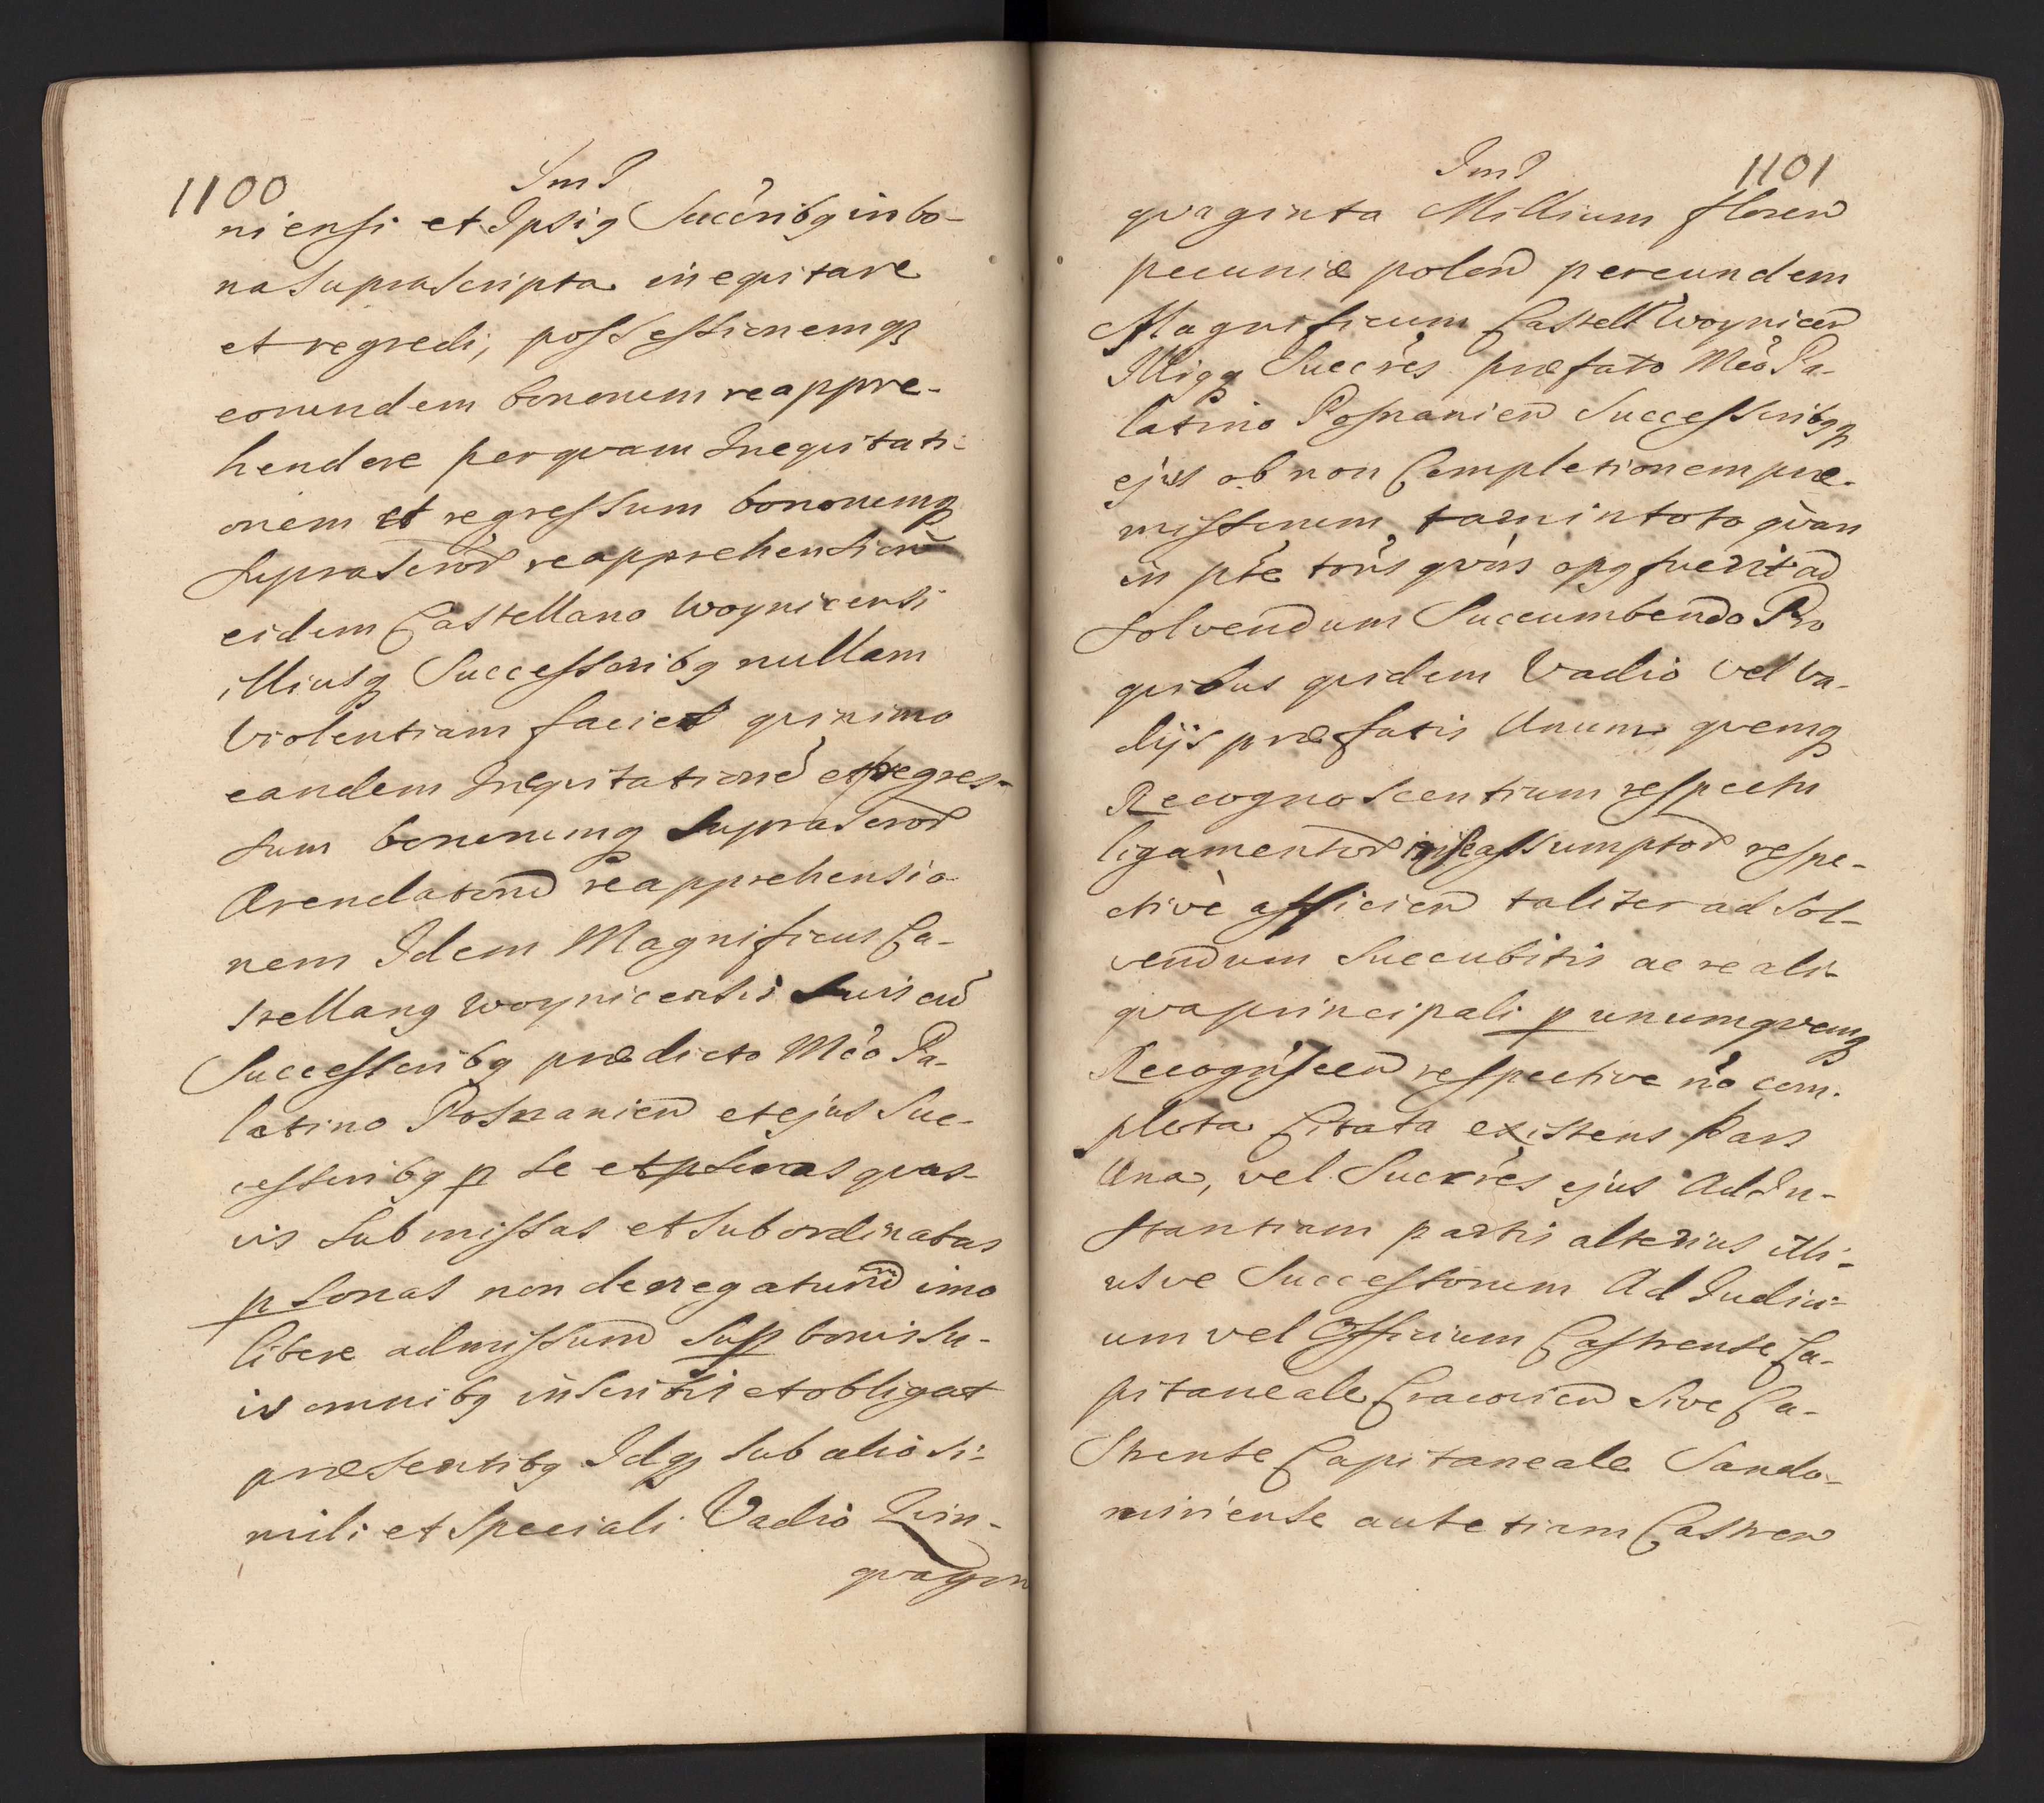 1100
niensi et Ipsiq Succ̃ribq in bo-
na suprascripta inequitare
et regredi, possessionemqȝ
eorundem bonorum reappre-
hendere per quam Inequitati-
onem et regressum bonorumq
suprascrõr reapprehensionẽ
eidem Castellano Woynicensi
illiusq Successoribq nullam
Violentiam faciet quinimo
eandem Inequitationẽ et regres-
sum bonorumq suprascrõr
Arendatorũ reapprehensio
nem Idem Magnificus Ca-
stellanq Woynicensis suis cũ
Successoribq prædicto Mc̃o Pa-
latino Posnanien̄ et ejus Suc-
cessoribq p se et psonas quas-
vis submissas et subordinatas
psonas non denegaturũ imo
libere admissurũ sup bonis su-
is omnibq inscribi et obligat
præsentibq Idqȝ sub alio si-
mili et speciali Vadio Quin-
quagin
1101
quaginta Millium floren̄
pecuniæ polon̄ per eundem
Magnificum Castell Woynicen̄
Illiqȝ Succ̃res præfato Mc̃o Pa-
latino Posnanien̄ Successoribqȝ
ejus ob non Completionem præ-
missorum tam in toto quam
in pte tõis qvõis opq fuerit ad
solvendum Succumbendo Pro
quibus quidem Vadio vel Va-
dijs præfatis Unum quemq
Recognoscentium respectu
ligamentor in se assumptor respe-
ctivè afficien̄ taliter ad sol-
vendum succubitis ac re ali-
qua principali p unumquemq
Recogñscen̄ respective nõ com-
pleta Citata existens Pars
Una, vel Succ̃res ejus Ad In-
stantiam partis alterius illi-
usve Successorum Ad Judici-
um vel Officium Castrense Ca-
pitaneale Cracovien̄ sive Ca-
strense Capitaneale Sando-
miriense aut etiam Castren̄